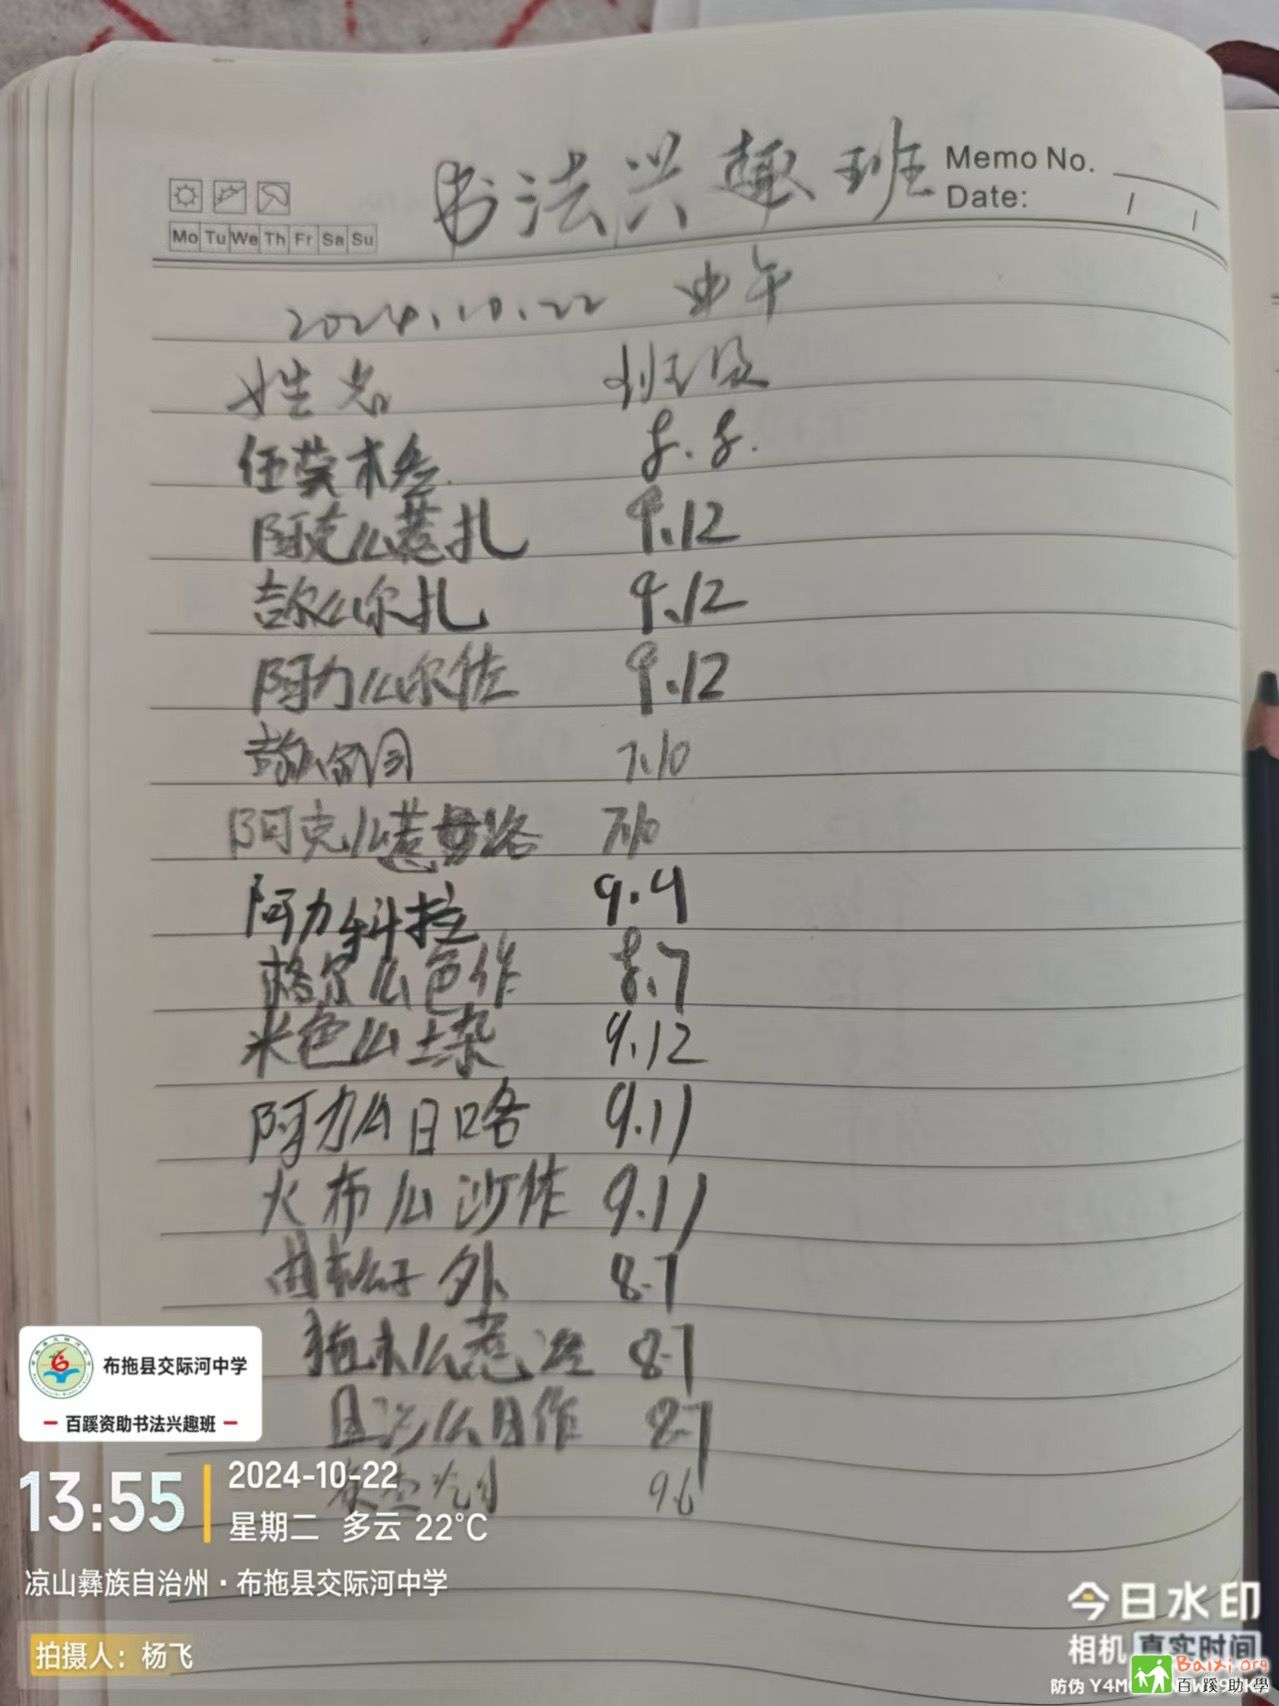 书法兴趣班
Memo No.
Date: / /
Mo Tu We Th Fr Sa Su
2024.10.22 中午
姓名 班级
伍莫木 8.8.
阿克么惹扎 9.12
吉尔么尔扎 9.12
阿力么尔佐 9.12
7.10
阿克么惹 路 7.10
阿力科拉 9.9
格尔么色作 8.7
米色么土杂 9.12
阿力么日咯 9.11
火布么沙作 9.11
外 8.7
拖木么惹 8.7
且沙么日作 8.7
9.6
布拖县交际河中学
百蹊资助书法兴趣班
13:55
2024-10-22
星期二 多云 22°C
凉山彝族自治州·布拖县交际河中学
拍摄人：杨飞
今日水印
相机 真实时间
防伪
Baixi.org
百蹊助學